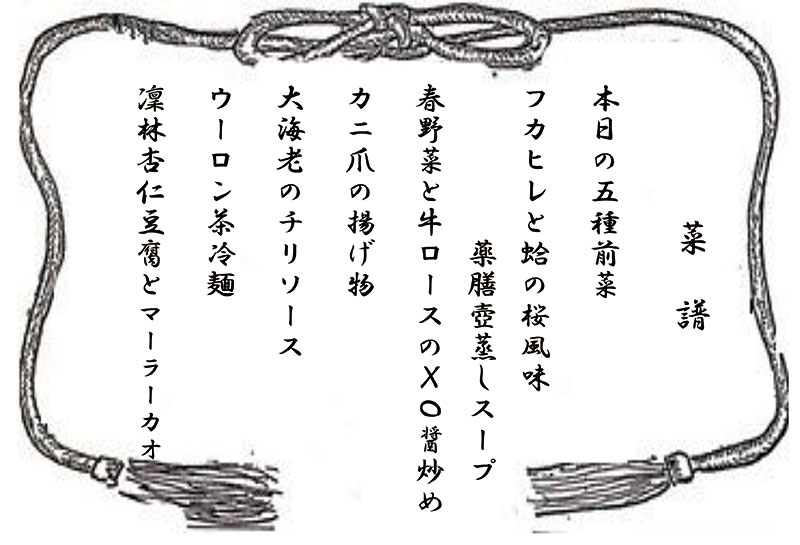 菜譜
本日の五種前菜
フカヒレと蛤の桜風味
薬膳壺蒸しスープ
春野菜と牛ロースのXO醤炒め
カニ爪の揚げ物
大海老のチリソース
ウーロン茶冷麺
凜林杏仁豆腐とマーラーカオ